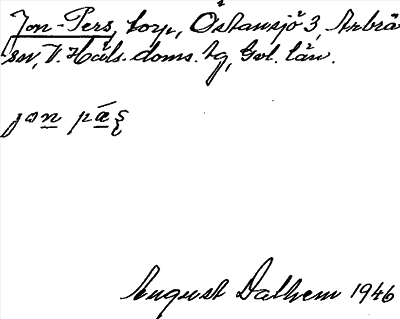 Jon-Pers, torp, Östansjö 3, Arbrå
sn, V. Häls. doms. tg, Gvl. län.
jon pæ̨ʂ
August Dalhem 1946